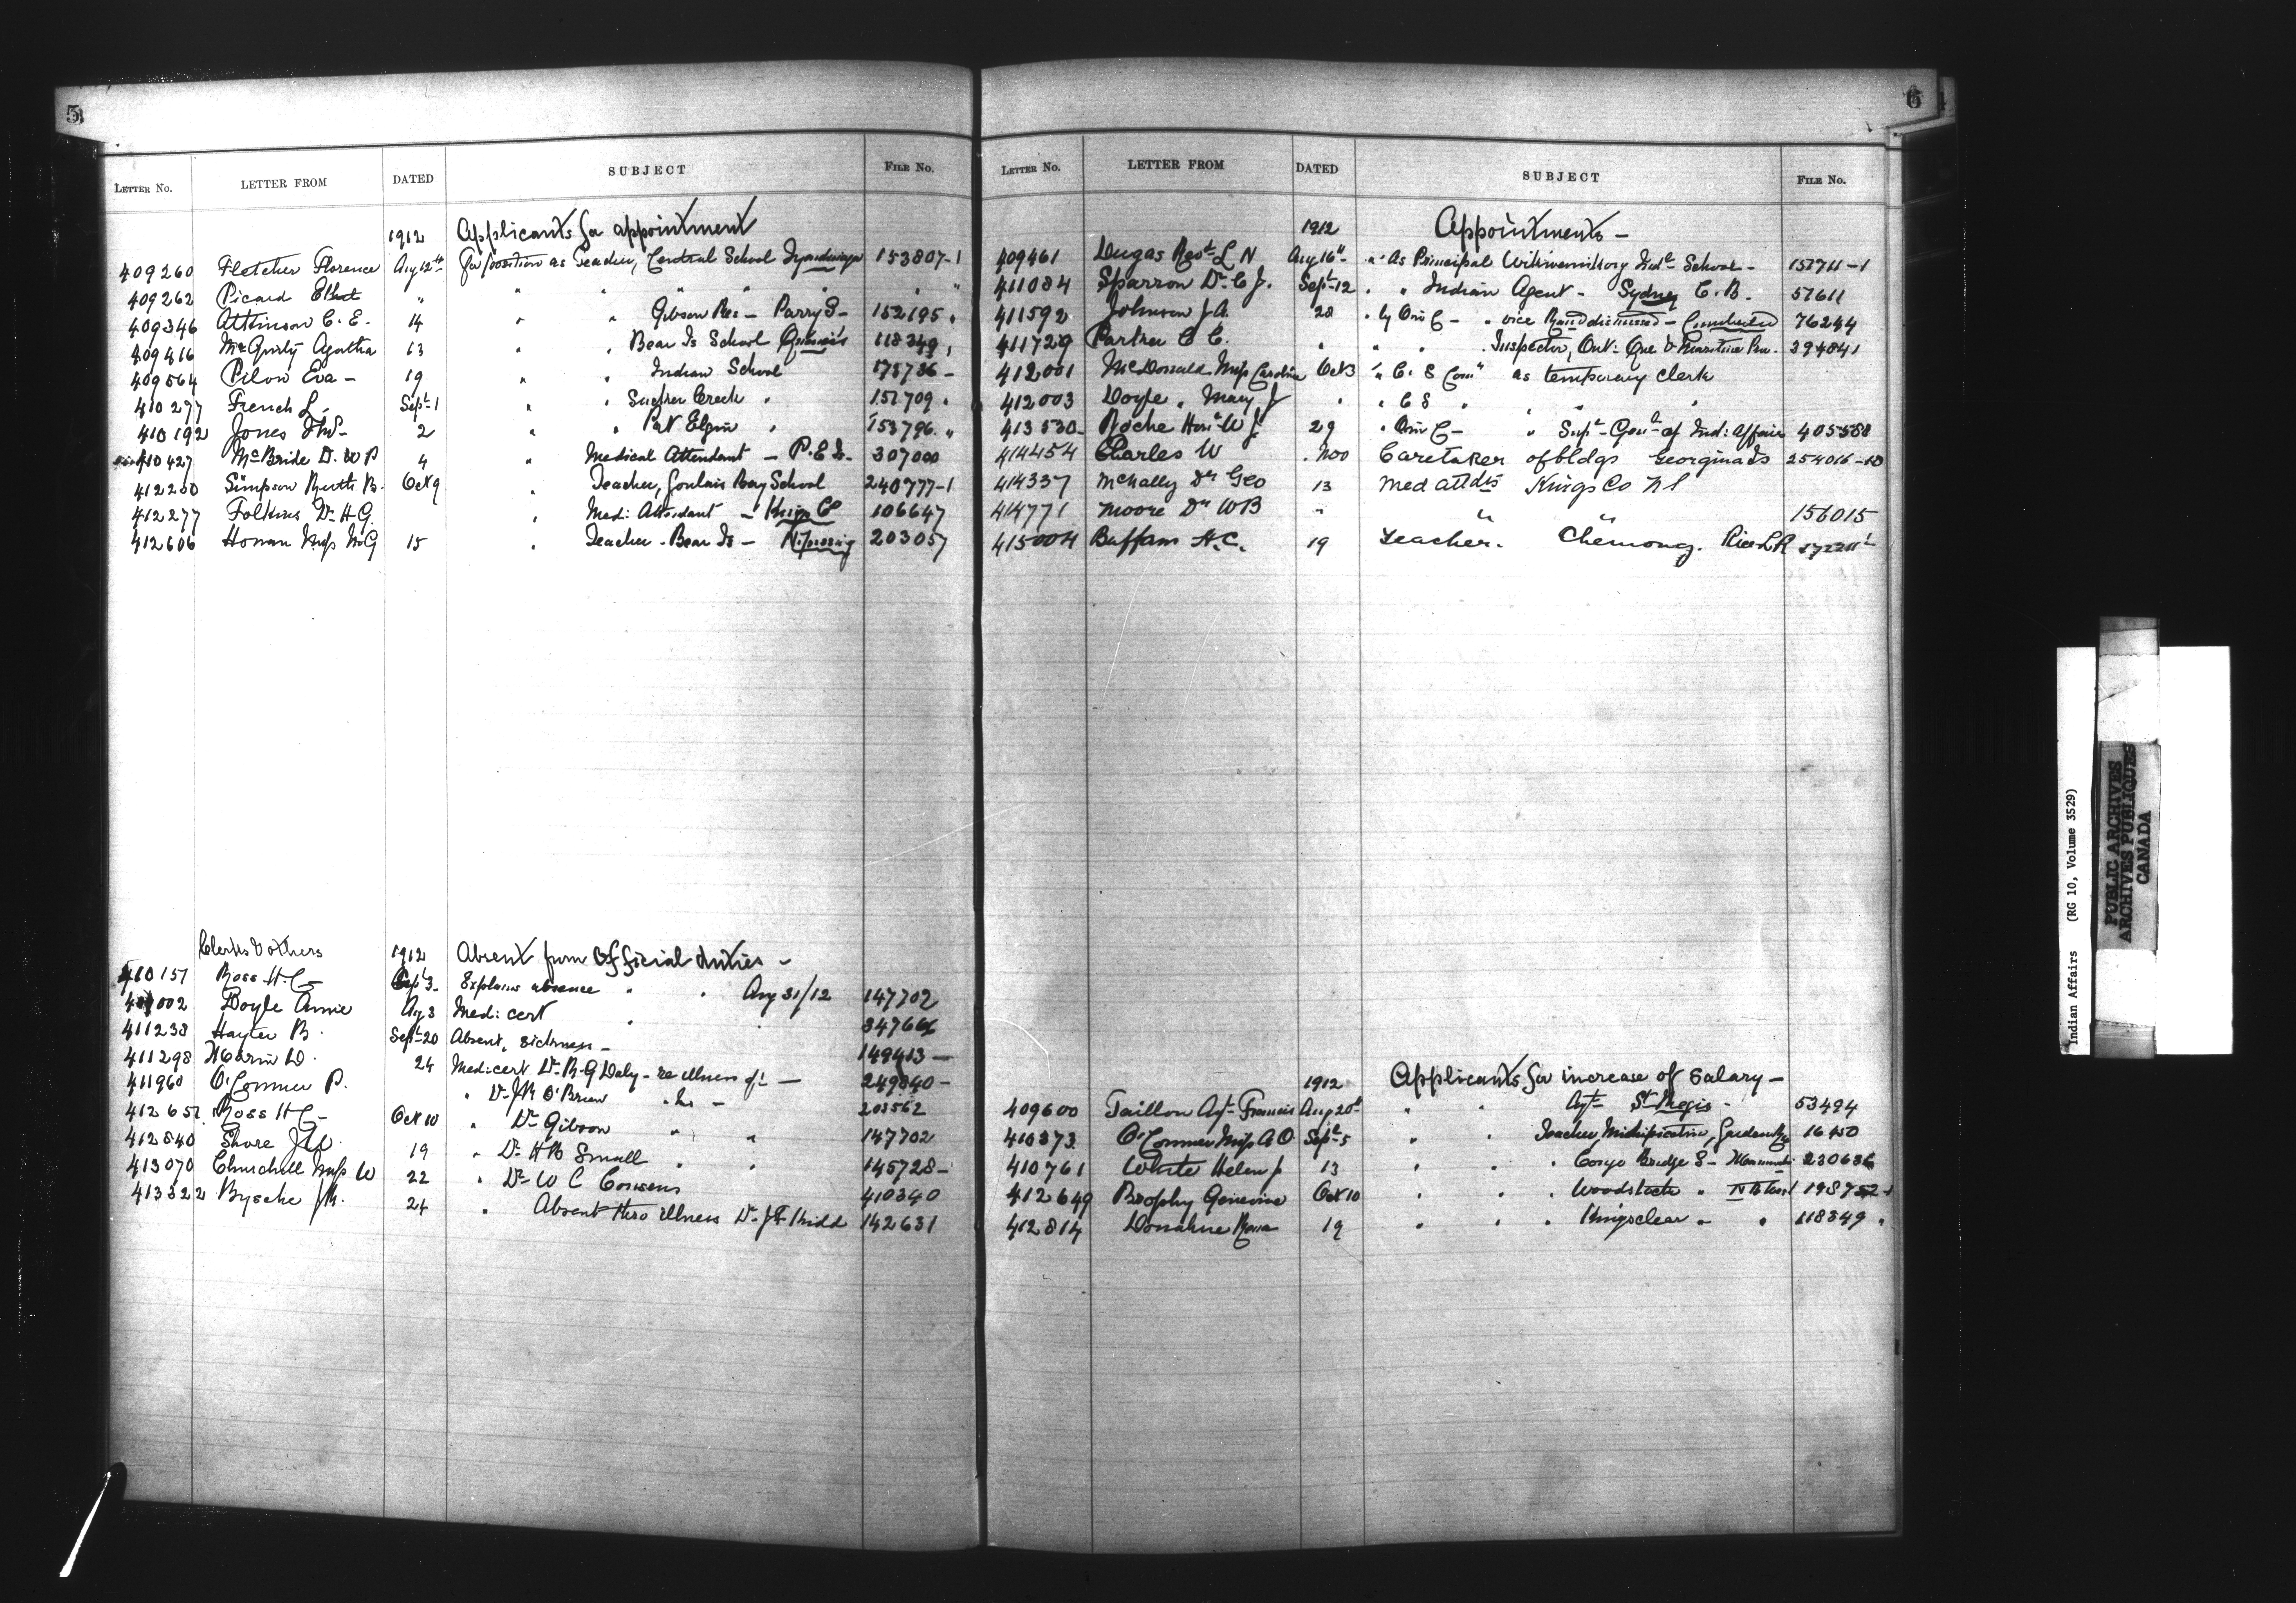 5
LETTER NO. LETTER FROM DATED SUBJECT FILE NO.
1912 Applicants for appointment
409260 Fletcher Florence Aug 12th for position as Teacher, Central School 153807-1
409262 Picard " " " " " "
409346 Atkinson C. E. 14 " " Gibson Res - Parry S- 152195 "
409416 McGurty Agatha 13 " " Bear Is School 118349 "
409564 Pilon Eva - 19 " " Indian School -
410277 French L. Sept 1 " " Sucker Creek " 151709 "
410192 Jones 2 " " Port Elgin " 153796 "
410427 McBride D. W P 4 " Medical Attendant - P.E.I. 307000
412200 Simpson Ruth B. Oct 9 " Teacher, Goulais Bay School 240777-1
412277 Folkins Dr H.G. " Med: Attendant - Kings Co 106647
412606 Honan Miss M G 15 " Teacher - Bear Is - Nipissing 203057
Clerks & others 1912 Absent from Official duties -
410151 Ross H.C- Sept 3- Explains absence " " Aug 31/12 147702
Doyle Annie Aug 3 Med: cert " "
411238 Hayter B. Sept 20 Absent, sickness - 149413 -
411298 24 Med: cert Dr R.G Daly - re illness of - 249840 -
411960 O'Connor P. " Dr J R O'Brien " - 203562
Ross H C- Oct 10 " Dr Gibson " " 147702
412840 Shore 19 " Dr H B Small " " 145728-
413070 Churchill Miss W 22 " Dr W C Cousens 410340
413322 Byshe J.M. 24 " Absent thro illness Dr J F Kidd 142631
6
LETTER NO. LETTER FROM DATED SUBJECT FILE NO.
1912 Appointments -
409461 Dugas Revd L N Aug 16th " As Principal Wikwemikong Indl School -
411084 Sparrow Dr C J. Sept 12 " " Indian Agent - Sydney C. B. 57611
411592 Johnson J A. 28 " by O in C - " vice Rand dismissed - Cumberland 76244
411729 Parker C C. " " " Inspector, Ont: Que & Maritime Prov. 394841
412001 McDonald Miss Caroline Oct 3 " C. S Com" as temporary clerk
412003 Doyle " Mary J " " C S " " " "
413530 Roche Hon W J. 29 " O in C - " Supt Genl of Ind: Affairs 405588
414454 Charles W Nov Caretaker of bldgs Georgina Is 254016-10
414337 McNally Dr Geo 13 Med attdts Kings Co N S
414771 Moore Dr W B " " " 156015
415004 Buffam H.C. 19 Teacher. Chemong. Rice L R
1912 Applicants for increase of Salary -
409600 Taillon Agt Francis Aug 20th " " Agt St Regis - 53494
410373 O'Connor Miss A O Sept 5 " " Teacher, Garden Riv 16450
410761 White Helen J 13 " " " Congo Bridge S - 230636
412649 Brophy Genevieve Oct 10 " " " Woodstock " N B
412814 Donahue Rosa 19 " " " Kingsclear " " 118349 "
Indian Affairs (RG 10, Volume 3529)
PUBLIC ARCHIVES
ARCHIVES PUBLIQUES
CANADA